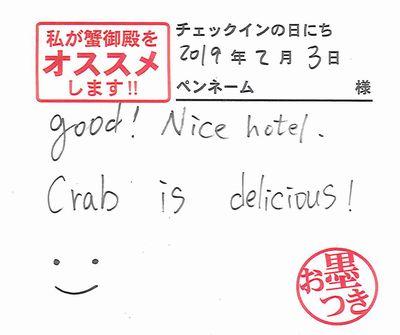 私が蟹御殿を
オススメ
します!!
チェックインの日にち
2019年2月3日
ペンネーム 様
good! Nice hotel.
Crab is delicious!
お墨つき